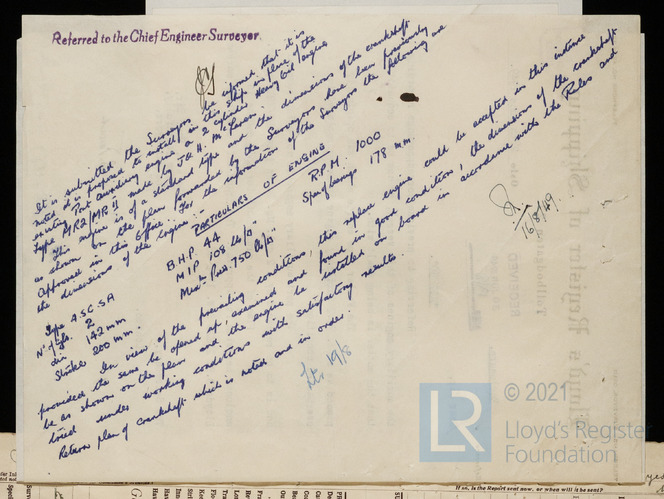 Referred to the Chief Engineer Surveyor.
It is submitted the Surveyors be informed that it is
noted it is proposed to install in this ship in place of the
existing Port auxiliary engine a 2 cylinder Heavy Oil engine
type MR2/MR II made by J & H. McLaren.
This engine is of a standard type and the dimensions of the crankshaft
as shown on the plan forwarded by the Surveyors have been previously
approved in this Office. For the information of the Surveyors the following are
the dimensions of the engine:-
PARTICULARS OF ENGINE
Type 4.S.C.SA
B.H.P 44
R.P.M. 1000
No of Cyls. 2
M I P 108 lbs/□"
Span of bearings 178 mm.
dia 142 mm
Max. Press. 750 lbs/□"
Stroke 200 mm.
In view of the prevailing conditions, this replace engine could be accepted in this instance
provided the same be opened up, examined and found in good condition, the dimensions of the crankshaft
be as shown on the plan and the engine be installed on board in accordance with the Rules and
tried under working conditions with satisfactory results.
Return plan of crankshaft which is noted and in order.
16/8/49.
19/8
LR
© 2021
Lloyd's Register
Foundation
If so, is the Report sent now, or when will it be sent?